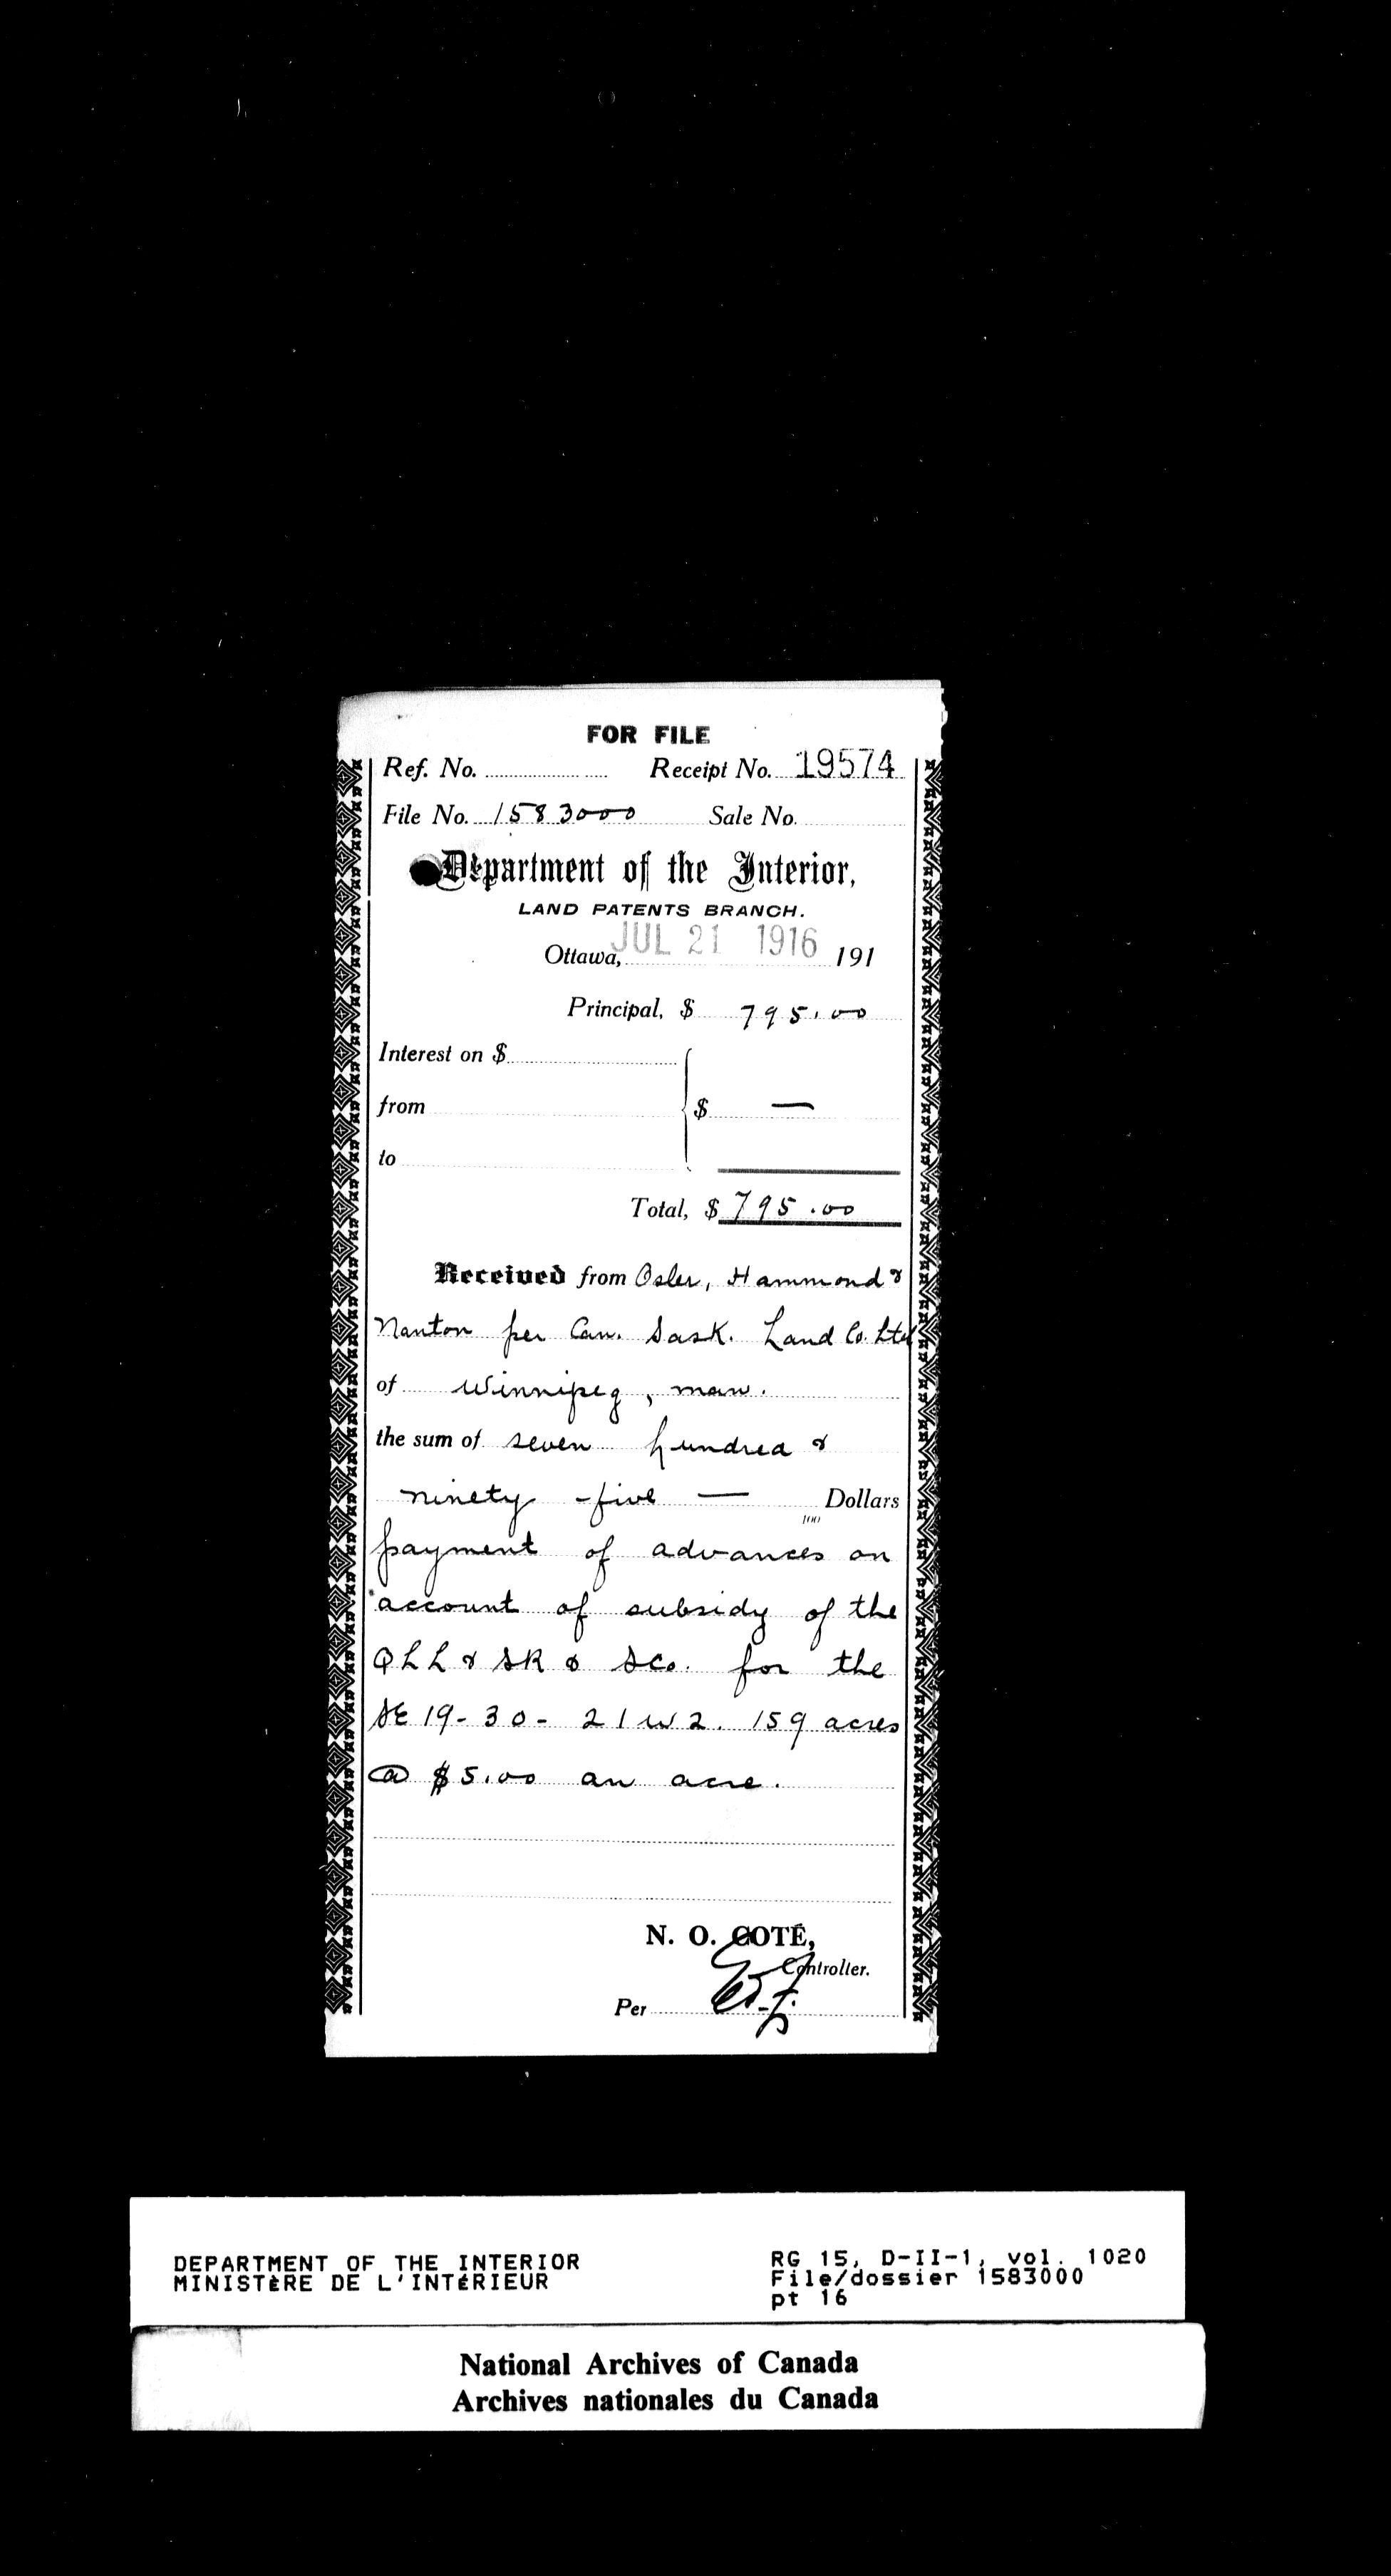 FOR FILE
Ref. No. Receipt No. 19574
File No. 1583000 Sale No.
Department of the Interior,
LAND PATENTS BRANCH.
Ottawa, JUL 21 1916 191
Principal, $ 795.00
Interest on $
from $ —
to
Total, $ 795.00
Received from Osler, Hammond &
Nanton per Can. Sask. Land Co. Ltd
of Winnipeg, Man.
the sum of seven hundred &
ninety-five — Dollars
100
payment of advances on
account of subsidy of the
QLL & SR & SCo. for the
SE 19-30-21 W2. 159 acres
@ $5.00 an acre.
N. O. COTÉ,
Controller.
Per
DEPARTMENT OF THE INTERIOR
MINISTÈRE DE L'INTÉRIEUR
RG 15, D-II-1, vol. 1020
File/dossier 1583000
pt 16
National Archives of Canada
Archives nationales du Canada